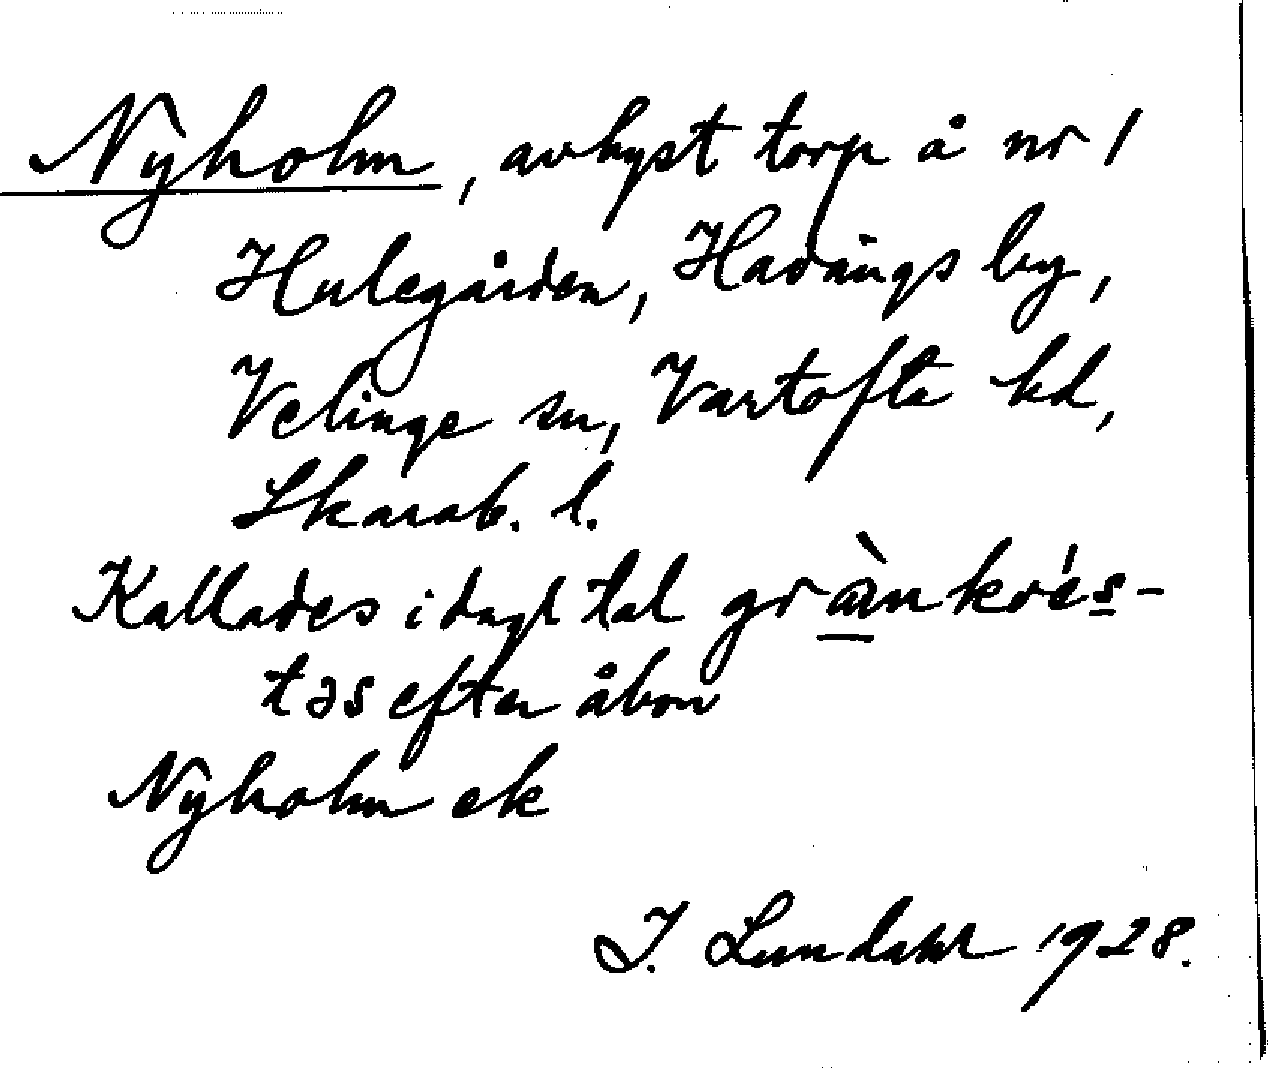 Nyholm, avhyst torp å nr 1
Hulegården, Havängs by,
Velinge sn, Vartofta hd,
Skarab. l.
Kallades i dagl tal grä̀nkrés-
təs efter åbon
Nyholm ek
I. Lundahl 1928.